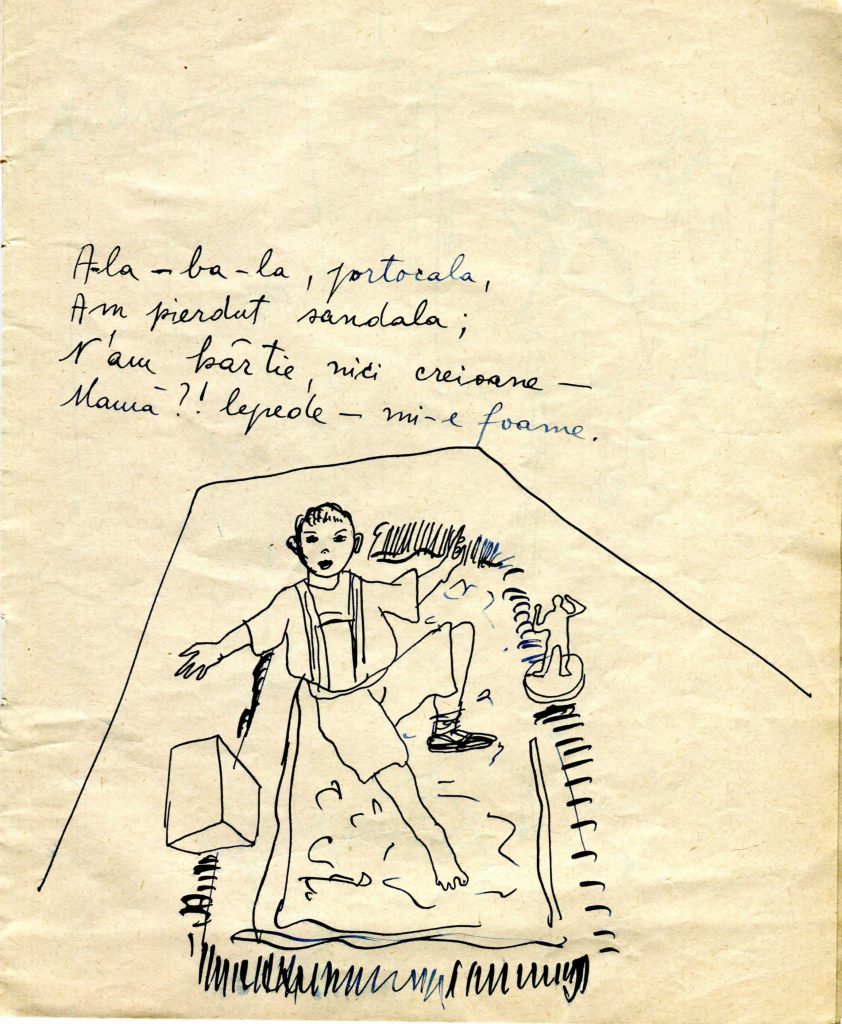 A-la-ba-la, portocala,
Am pierdut sandala;
N'am hârtie, nici creioane —
Mamă?! lepede — mi-e foame.